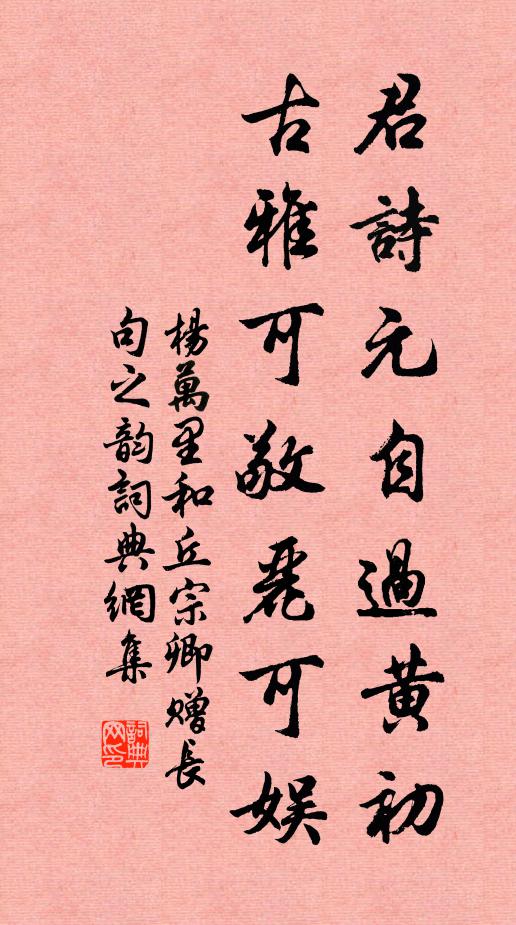 君詩元自過黃初
古雅可敬麗可娛
楊萬里和丘宗卿贈長
句之韵詞典網集
詞典
网印